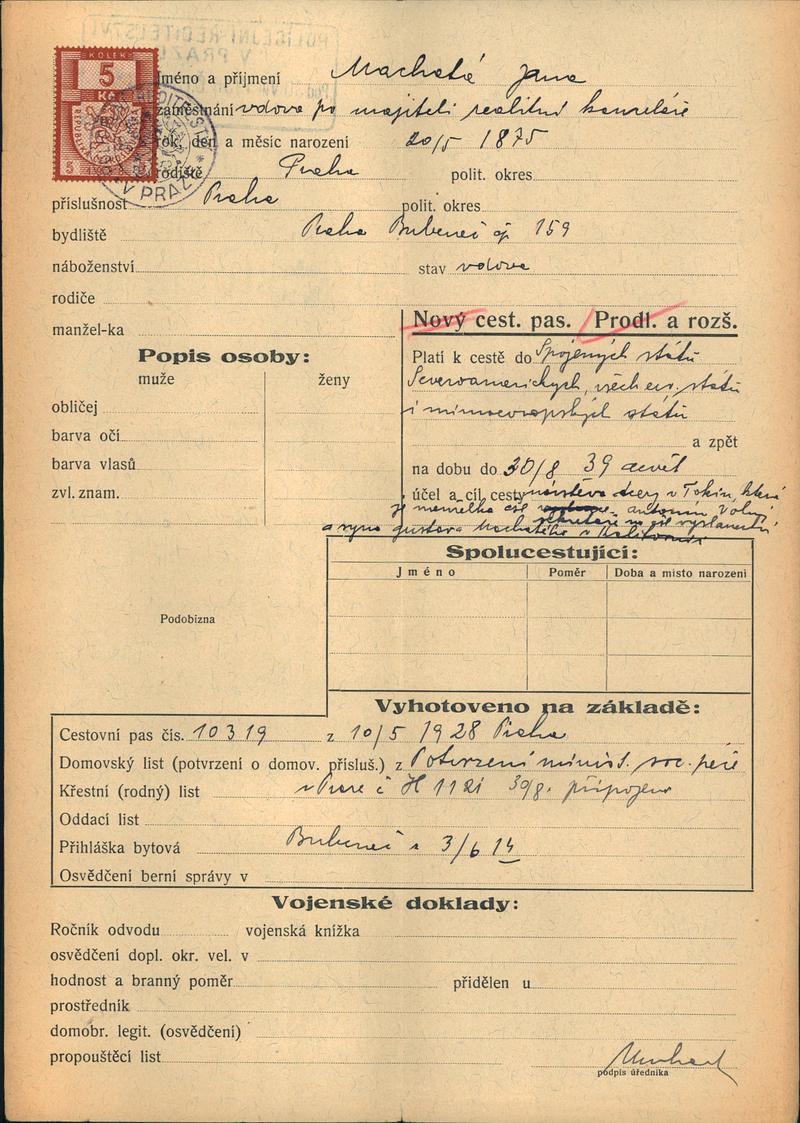 KOLEK
5
Kč
Jméno a příjmení Machatá Jana
zaměstnání vdova po majiteli realitní kanceláře
rok, den a měsíc narození 20/5 1875
rodiště Praha polit. okres
příslušnost Praha polit. okres
V PRAZE
bydliště Praha Bubeneč čp. 159
náboženství stav vdova
rodiče
manžel-ka
Nový cest. pas. Prodl. a rozš.
Popis osoby:
muže ženy
obličej
barva očí
barva vlasů
zvl. znam.
Platí k cestě do Spojených států
Severoamerických, všech evr. států
i mimoevropských států
a zpět
na dobu do 30/8 39
účel a cíl cesty návštěva dcery v Tokiu, která
je manželka čsl. Antonín Volný
a syna Gustava Machatého v
Spolucestující:
Jméno Poměr Doba a místo narození
Podobizna
Vyhotoveno na základě:
Cestovní pas čís. 10319 z 10/5 1928 Praha
Domovský list (potvrzení o domov. přísluš.) z Potvrzení minist. soc. péče
Křestní (rodný) list v Praze č. H 1121 30/8. připojeno
Oddací list
Přihláška bytová Bubeneč z 3/6 14
Osvědčení berní správy v
Vojenské doklady:
Ročník odvodu vojenská knížka
osvědčení dopl. okr. vel. v
hodnost a branný poměr přidělen u
prostředník
domobr. legit. (osvědčení)
propouštěcí list
podpis úředníka